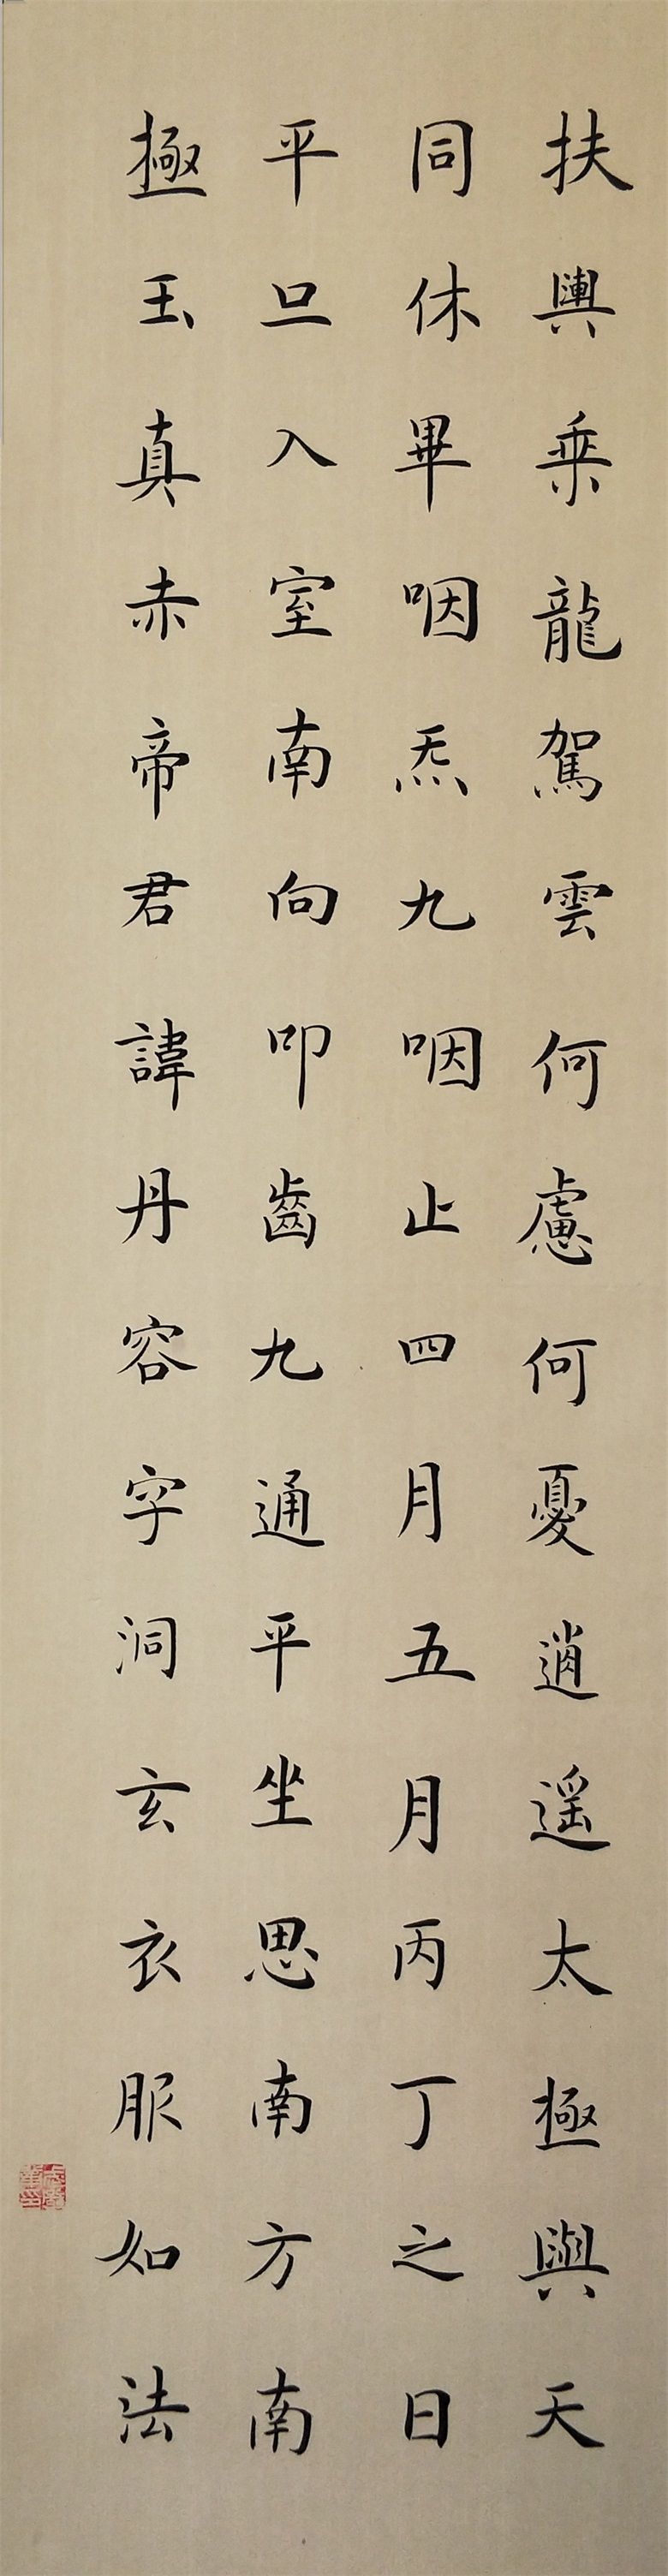 扶輿乗龍駕雲何慮何憂逍遥太極與天
同休畢咽炁九咽止四月五月丙丁之日
平旦入室南向叩齒九通平坐思南方南
極玉真赤帝君諱丹容字洞玄衣服如法